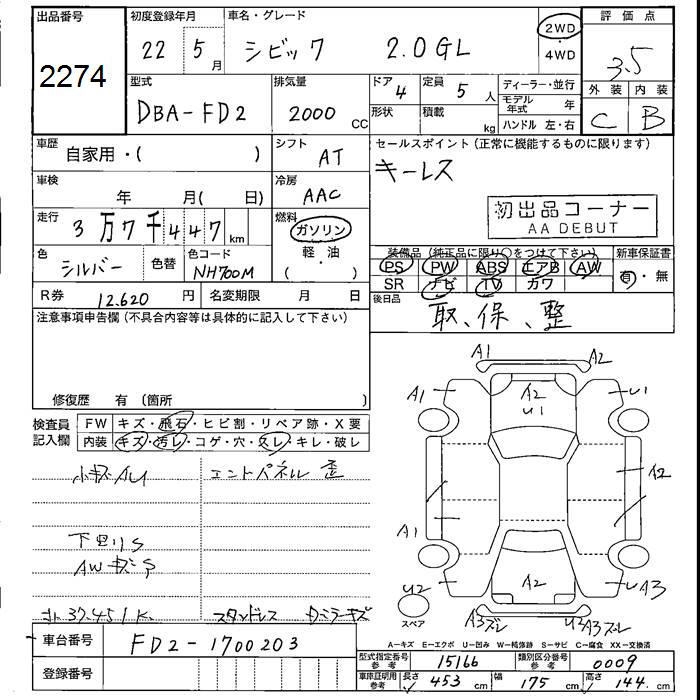 出品番号
2274
初度登録年月
22 5 月
車名・グレード
シビック 2.0GL
2WD
・
4WD
評価点
3.5
外装 内装
C B
型式
DBA-FD2
排気量
2000 CC
ドア 4
形状
定員 5 人
積載 kg
ディーラー・並行
モデル年式 年
ハンドル 左・右
車歴
自家用・( )
シフト
AT
セールスポイント(正常に機能するものに限ります)
キーレス
車検
年 月( 日)
冷房
AAC
初出品コーナー
AA DEBUT
走行
3万7千447 km
燃料
ガソリン
軽・油
( )
色
シルバー
色替
色コード
NH700M
装備品(純正品に限り○をつけて下さい)
PS PW ABS エアB AW
SR ナビ TV カワ
新車保証書
有・無
R券 12.620 円
名変期限 月 日
後日品
取、保、整
注意事項申告欄(不具合内容等は具体的に記入して下さい)
修復歴 有(箇所 )
検査員
記入欄
FW キズ・飛石・ヒビ割・リペア跡・X要
内装 キズ・汚レ・コゲ・穴・スレ・キレ・破レ
小キズAU
エンドパネル 歪
下回りS
AWキズ
37.451K
A1 A2
A1 A2 U1 U1
A2
A1
U2 A2 A3
スペア
A3ズレ U2 A3ズレ
A-キズ E-エクボ U-凹み W-補修跡 S-サビ C-腐食 XX-交換済
車台番号 FD2-1700203
型式指定番号 参考 15166
類別区分番号 参考 0009
登録番号
車庫証明用 参考 長さ 453 cm 幅 175 cm 高さ 144 cm